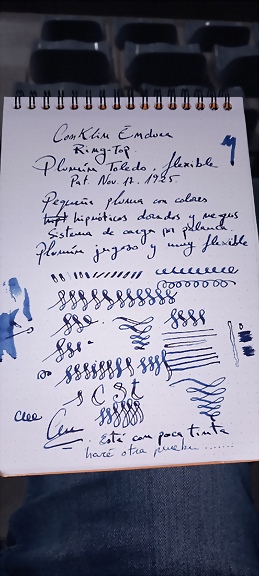 Conklin Endura
Ring-Top.
Plumín Toledo, flexible
Pat. Nov. 17. 1925.
Pequeña pluma con colores
hipnóticos dorados y negros
Sistema de carga por palanca.
Plumín jugoso y muy flexible
s C St
Está con poca tinta
haré otra prueba.......